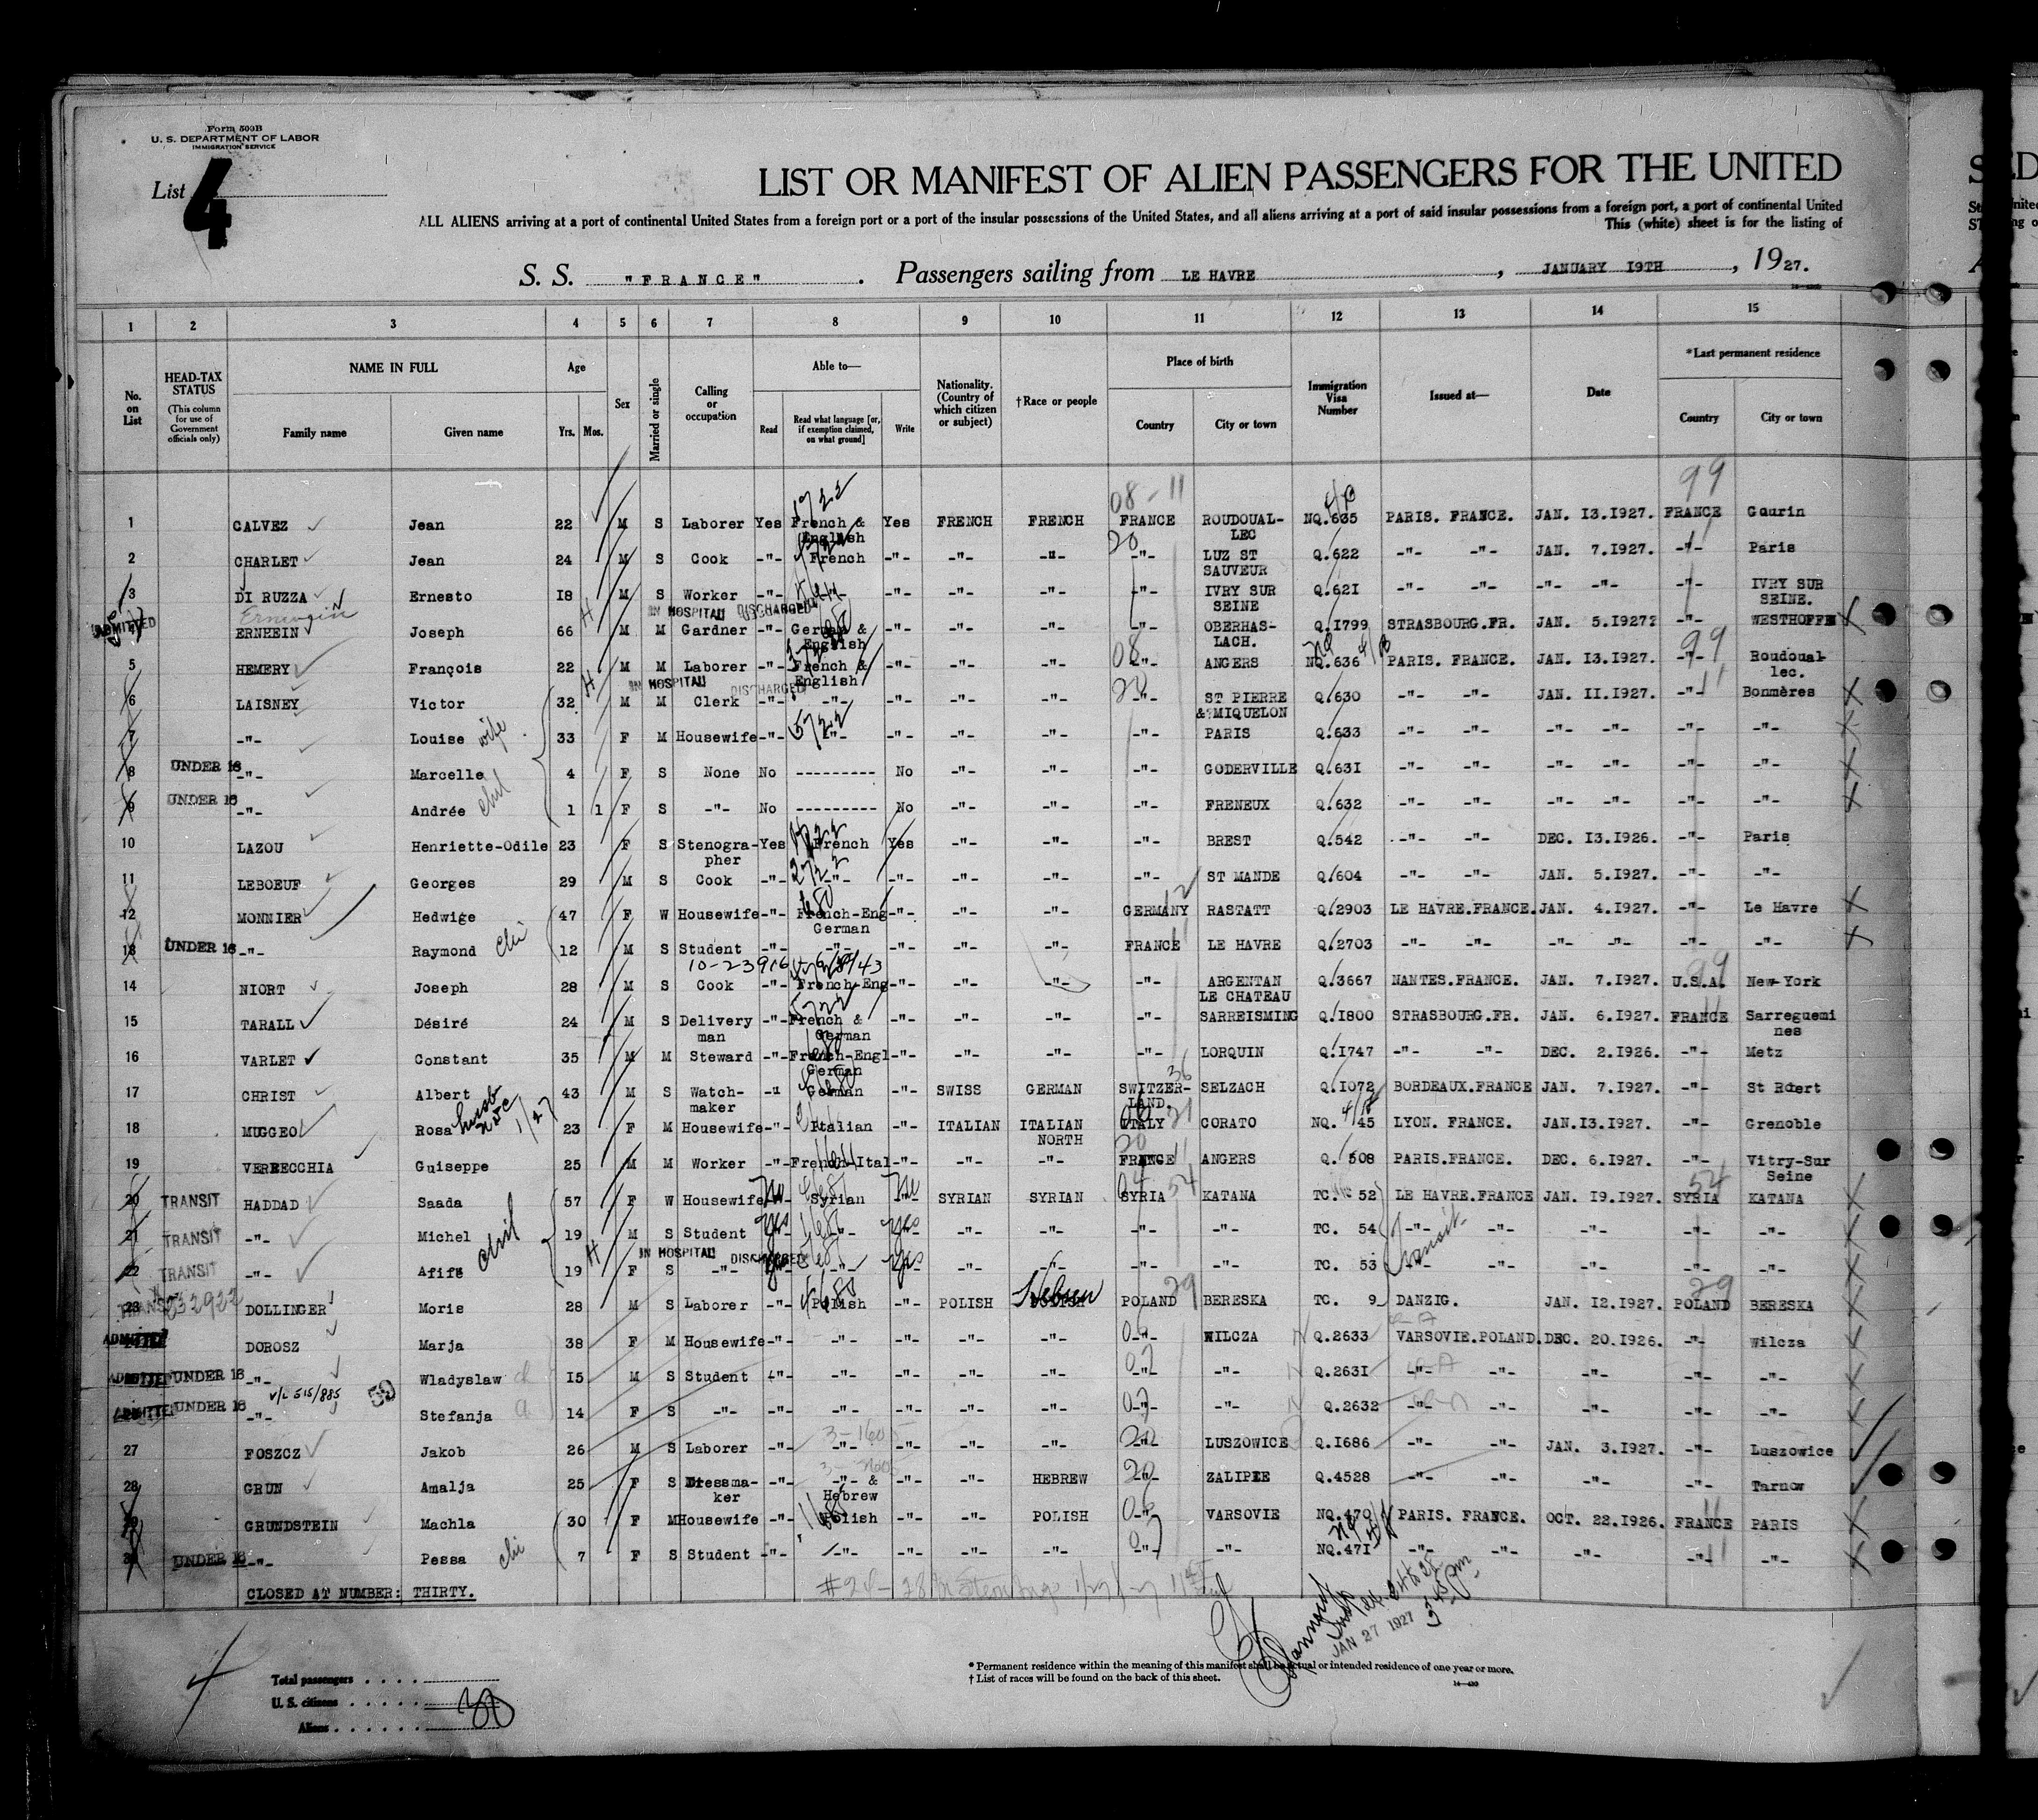 Form 500B
U. S. DEPARTMENT OF LABOR
IMMIGRATION SERVICE
List 4
LIST OR MANIFEST OF ALIEN PASSENGERS FOR THE UNITED
ALL ALIENS arriving at a port of continental United States from a foreign port or a port of the insular possessions of the United States, and all aliens arriving at a port of said insular possessions from a foreign port, a port of continental United
This (white) sheet is for the listing of
S. S. "FRANCE" . Passengers sailing from LE HAVRE , JANUARY I9TH , 1927.
1 2 3 4 5 6 7 8 9 10 11 12 13 14 15
No. on List
HEAD-TAX STATUS (This column for use of Government officials only)
NAME IN FULL Family name Given name
Age Yrs. Mos.
Sex
Married or single
Calling or occupation
Able to— Read Read what language [or, if exemption claimed, on what ground] Write
Nationality. (Country of which citizen or subject)
†Race or people
Place of birth Country City or town
Immigration Visa Number
Issued at—
Date
*Last permanent residence Country City or town
08-11 99
1 CALVEZ Jean 22 M S Laborer Yes French & English Yes FRENCH FRENCH FRANCE ROUDOUAL-LEC NQ.635 PARIS. FRANCE. JAN. I3.I927. FRANCE Gourin
2 CHARLET Jean 24 M S Cook -"- French -"- -"- -"- -"- LUZ ST SAUVEUR Q.622 -"- -"- JAN. 7.I927. -"- Paris
3 DI RUZZA Ernesto I8 M S Worker -"- -"- -"- -"- -"- IVRY SUR SEINE Q.62I -"- -"- -"- -"- -"- IVRY SUR SEINE.
IN HOSPITAL DISCHARGED
ADMITTED ERNEEIN Joseph 66 M M Gardner -"- German & English -"- -"- -"- -"- OBERHAS-LACH. Q.I799 STRASBOURG.FR. JAN. 5.I927? -"- WESTHOFFEN
5 HEMERY François 22 M M Laborer -"- French & English -"- -"- -"- -"- ANGERS NQ.636 PARIS. FRANCE. JAN. I3.I927. -"- Roudoual-lec.
IN HOSPITAL DISCHARGED
6 LAISNEY Victor 32 M M Clerk -"- -"- -"- -"- -"- -"- ST PIERRE & MIQUELON Q.630 -"- -"- JAN. II.I927. -"- Bonmères
7 -"- Louise wife 33 F M Housewife -"- -"- -"- -"- -"- -"- PARIS Q.633 -"- -"- -"- -"- -"- -"-
8 UNDER 16 -"- Marcelle 4 F S None No --------- No -"- -"- -"- GODERVILLE Q.63I -"- -"- -"- -"- -"- -"-
9 UNDER 16 -"- Andrée chil 1 1 F S -"- No --------- No -"- -"- -"- FRENEUX Q.632 -"- -"- -"- -"- -"- -"-
10 LAZOU Henriette-Odile 23 F S Stenogra-pher Yes French Yes -"- -"- -"- BREST Q.542 -"- -"- DEC. I3.I926. -"- Paris
11 LEBOEUF Georges 29 M S Cook -"- -"- -"- -"- -"- -"- ST MANDE Q.604 -"- -"- JAN. 5.I927. -"- -"-
12 MONNIER Hedwige 47 F W Housewife -"- French-Eng German -"- -"- -"- GERMANY RASTATT Q.2903 LE HAVRE.FRANCE. JAN. 4.I927. -"- Le Havre
13 UNDER 16 -"- Raymond 12 M S Student -"- -"- -"- -"- -"- FRANCE LE HAVRE Q.2703 -"- -"- -"- -"- -"- -"-
14 NIORT Joseph 28 M S Cook -"- French-Eng -"- -"- -"- -"- ARGENTAN LE CHATEAU Q.3667 NANTES.FRANCE. JAN. 7.I927. U.S.A. New-York
15 TARALL Désiré 24 M S Delivery man -"- French & German -"- -"- -"- -"- SARREISMING Q.I800 STRASBOURG.FR. JAN. 6.I927. FRANCE Sarreguemi nes
16 VARLET Constant 35 M M Steward -"- French-Engl German -"- -"- -"- -"- LORQUIN Q.I747 -"- -"- DEC. 2.I926. -"- Metz
17 CHRIST Albert 43 M S Watch-maker -" German -"- SWISS GERMAN SWITZER-LAND. SELZACH Q.I072 BORDEAUX.FRANCE JAN. 7.I927. -"-
18 MUGGEO Rosa 23 F M Housewife -"- Italian -"- ITALIAN ITALIAN NORTH ITALY CORATO NQ. 45 LYON. FRANCE. JAN.I3.I927. -"- Grenoble
19 VERRECCHIA Guiseppe 25 M M Worker -"- French-Ital -"- -"- -"- FRANCE ANGERS Q. 508 PARIS.FRANCE. DEC. 6.I927. -"- Vitry-Sur Seine
20 TRANSIT HADDAD Saada 57 F W Housewife No Syrian No SYRIAN SYRIAN SYRIA KATANA TC. 52 LE HAVRE.FRANCE JAN. I9.I927. SYRIA KATANA
21 TRANSIT -"- Michel chil 19 M S Student yes -"- yes -"- -"- -"- -"- TC. 54 -"- -"- -"- -"- -"-
IN HOSPITAL DISCHARGED
22 TRANSIT -"- Afife 19 F S -"- -"- yes -"- -"- -"- -"- TC. 53 -"- -"- -"- -"- -"-
23 TRANSIT DOLLINGER Moris 28 M S Laborer -"- Polish -"- POLISH Hebrew POLAND BERESKA TC. 9 DANZIG. JAN. I2.I927. POLAND BERESKA
ADMITTED DOROSZ Marja 38 F M Housewife -"- -"- -"- -"- -"- -"- WILCZA Q.2633 VARSOVIE.POLAND. DEC. 20.I926. -"- Wilcza
ADMITTED UNDER 16 -"- Wladyslaw I5 M S Student -"- -"- -"- -"- -"- -"- -"- Q.263I -"- -"- -"- -"- -"-
V/L 515/885
ADMITTED UNDER 16 -"- Stefanja 14 F S -"- -"- -"- -"- -"- -"- -"- -"- Q.2632 -"- -"- -"- -"- -"-
27 FOSZCZ Jakob 26 M S Laborer -"- -"- -"- -"- -"- -"- LUSZOWICE Q.I686 -"- -"- JAN. 3.I927. -"- Luszowice
28 GRUN Amalja 25 F S Dressma-ker -"- -"- & Hebrew -"- -"- HEBREW -"- ZALIPIE Q.4528 -"- -"- -"- -"- Tarnow
29 GRUNDSTEIN Machla 30 F M Housewife -"- Polish -"- -"- POLISH -"- VARSOVIE NQ.470 PARIS. FRANCE. OCT. 22.I926. FRANCE PARIS
30 UNDER 16 -"- Pessa 7 F S Student -"- -"- -"- -"- -"- -"- -"- NQ.47I -"- -"- -"- -"- -"-
CLOSED AT NUMBER: THIRTY.
JAN 27 1927
Total passengers
U. S. citizens
Aliens
30
* Permanent residence within the meaning of this manifest shall be actual or intended residence of one year or more.
† List of races will be found on the back of this sheet.